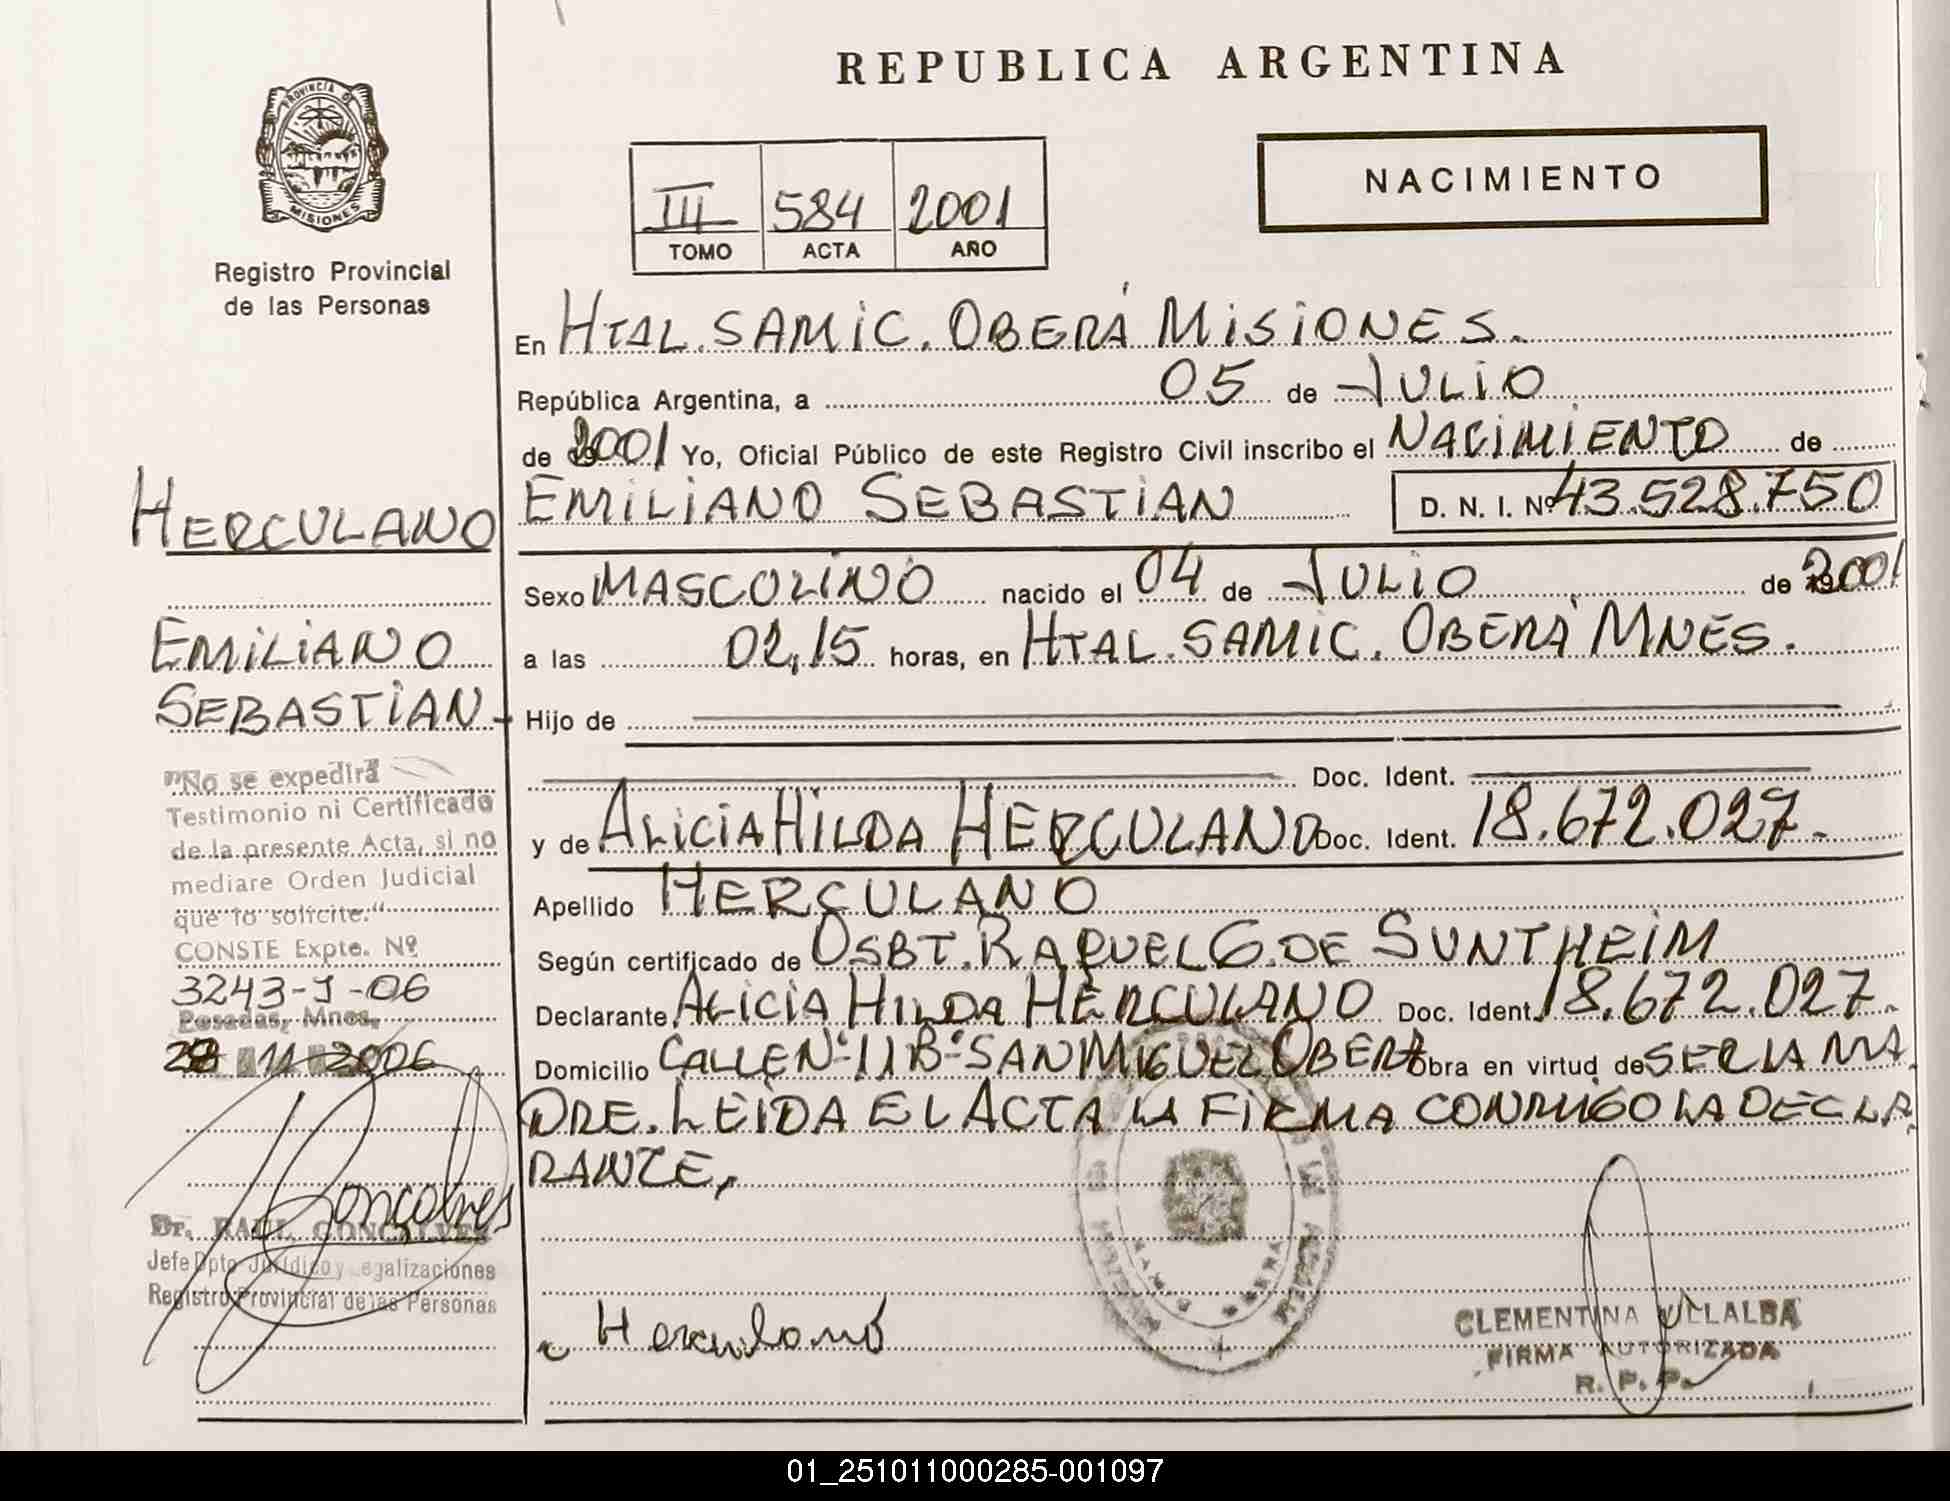 REPUBLICA ARGENTINA
PROVINCIA DE
MISIONES
Registro Provincial
de las Personas
III 584 2001
TOMO ACTA AÑO
NACIMIENTO
En HTAL. SAMIC. OBERÁ MISIONES.
República Argentina, a 05 de JULIO
de 2001 Yo, Oficial Público de este Registro Civil inscribo el NACIMIENTO de
EMILIANO SEBASTIAN D. N. I. Nº 43.528.750
Sexo MASCULINO nacido el 04 de JULIO de 2001
a las 02,15 horas, en HTAL. SAMIC. OBERÁ MNES.
Hijo de
Doc. Ident.
y de ALICIA HILDA HERCULANO Doc. Ident. 18.672.027.
Apellido HERCULANO
Según certificado de OSBT. RAQUEL G. DE SUNTHEIM
Declarante ALICIA HILDA HERCULANO Doc. Ident. 18.672.027.
Domicilio CALLE Nº 11 Bº SAN MIGUEL OBERÁ Obra en virtud de SER LA MA
DRE. LEIDA EL ACTA LA FIRMA CONMIGO LA DECLA
RANTE,
Herculano
CLEMENTINA VILLALBA
FIRMA AUTORIZADA
R. P. P.
HERCULANO
EMILIANO
SEBASTIAN -
"No se expedirá
Testimonio ni Certificado
de la presente Acta, si no
mediare Orden Judicial
que lo solicite."
CONSTE Expte. Nº
3243-J-06
Posadas, Mnes.
28 11 2006
Goncalves
Dr. RAUL GONCALVES
Jefe Dpto Jurídico y Legalizaciones
Registro Provincial de las Personas
01_251011000285-001097